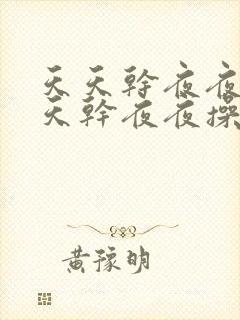 天天幹夜夜
天幹夜夜操
黄豫明